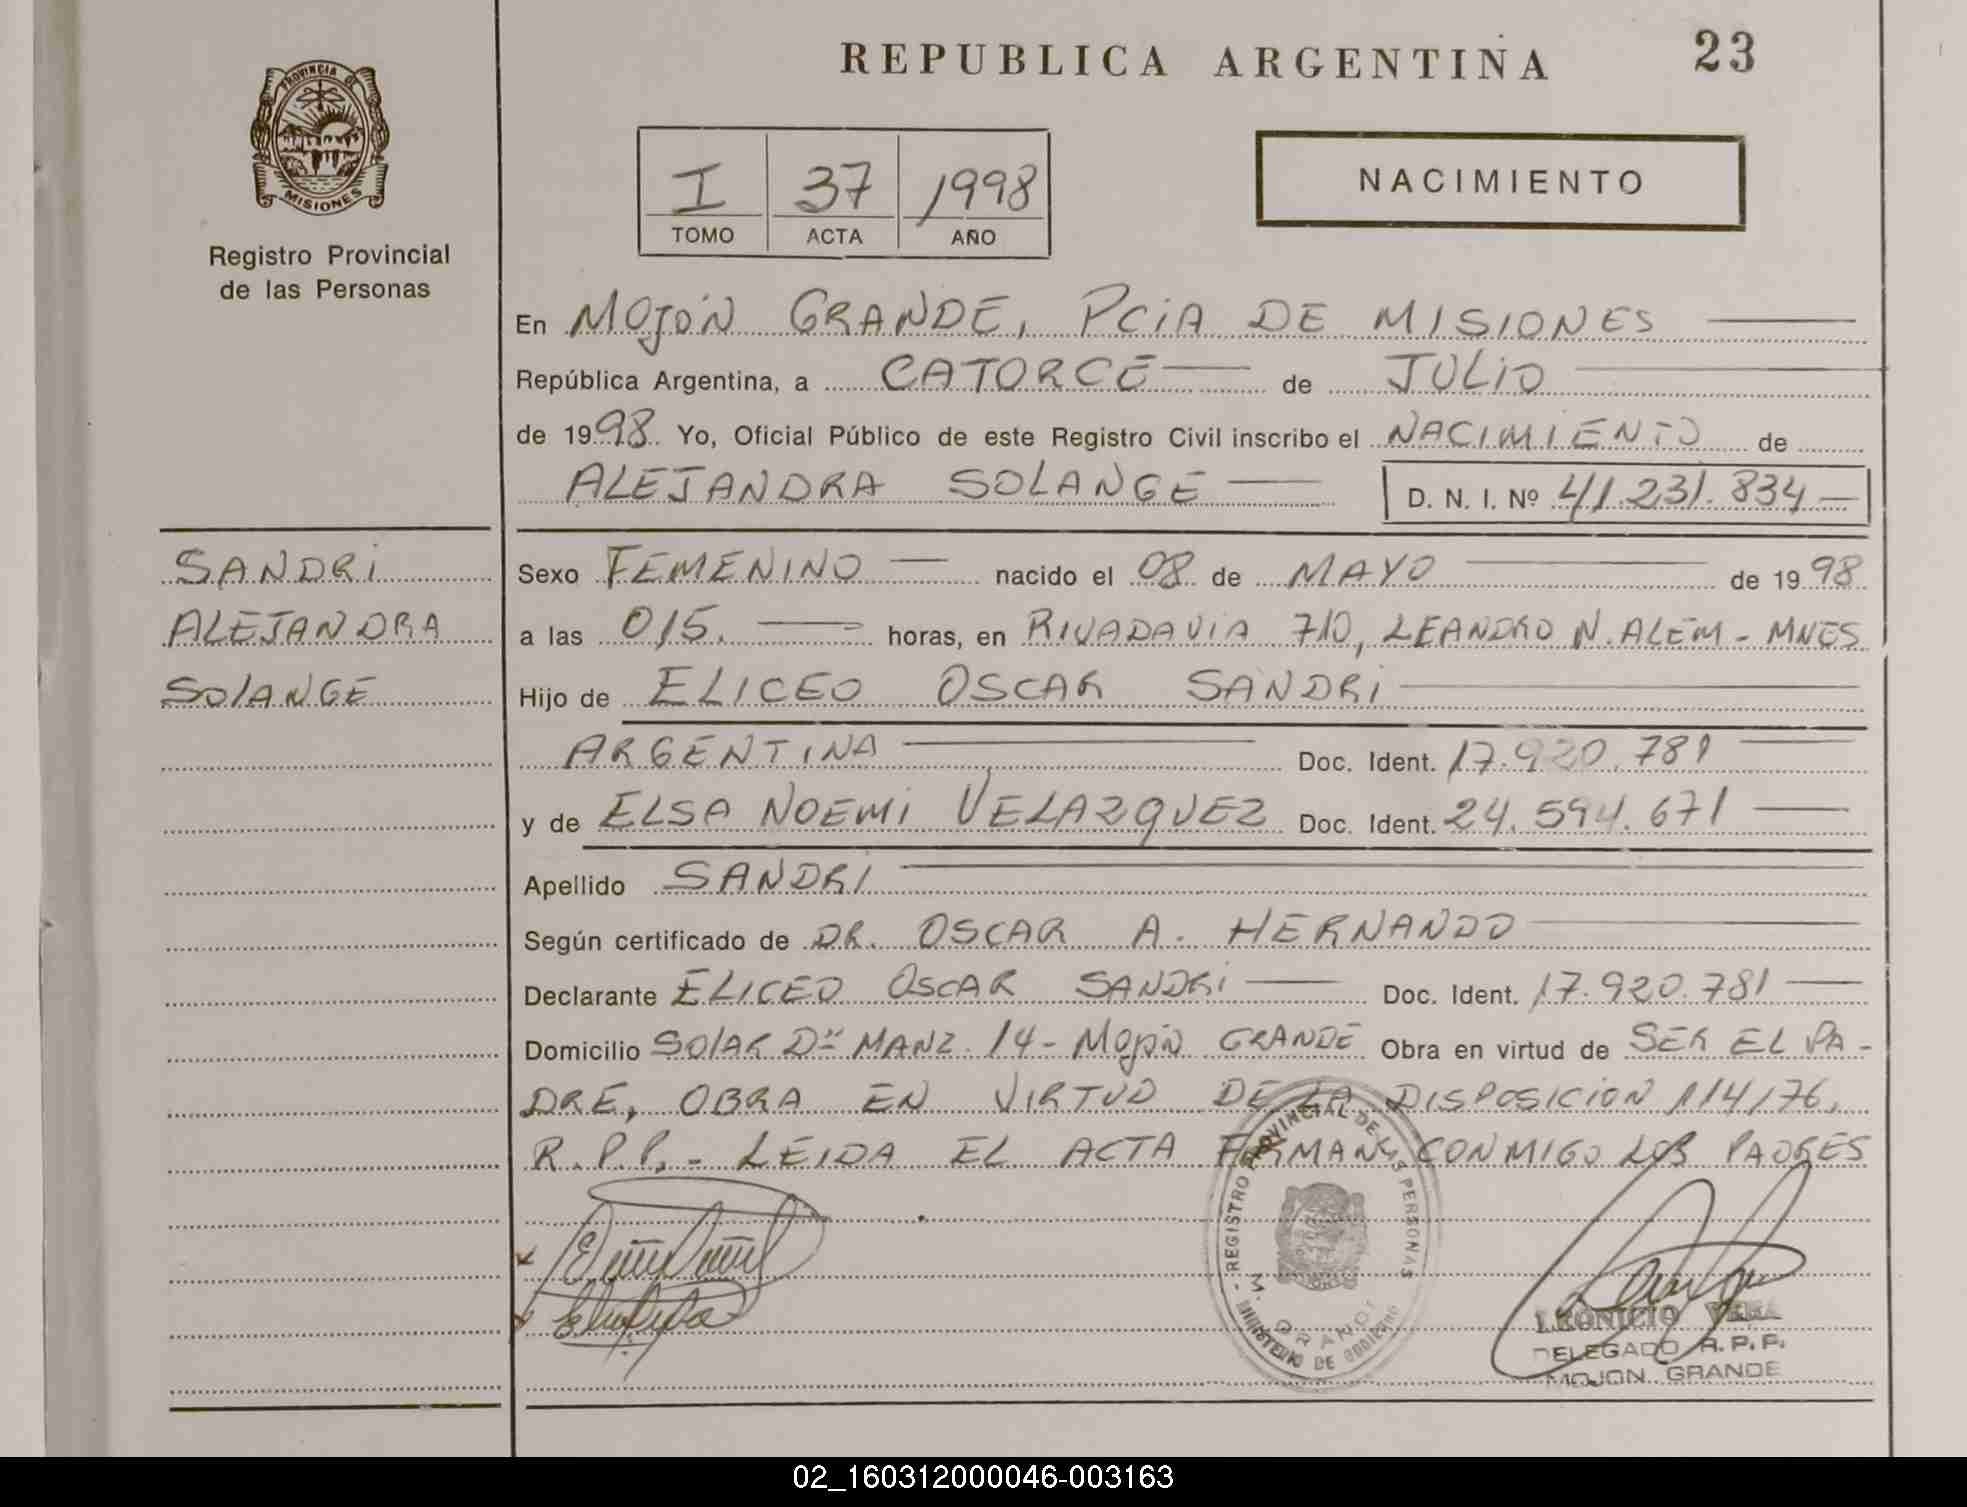 REPUBLICA ARGENTINA
23
PROVINCIA DE
MISIONES
Registro Provincial
de las Personas
I 37 1998
TOMO ACTA AÑO
NACIMIENTO
En MOJÓN GRANDE, PCIA DE MISIONES
República Argentina, a CATORCE de JULIO
de 1998 Yo, Oficial Público de este Registro Civil inscribo el NACIMIENTO de
ALEJANDRA SOLANGE D. N. I. Nº 41.231.834
SANDRI
ALEJANDRA
SOLANGE
Sexo FEMENINO nacido el 08 de MAYO de 1998
a las 015. horas, en RIVADAVIA 710, LEANDRO N. ALEM - MNES
Hijo de ELICEO OSCAR SANDRI
ARGENTINA Doc. Ident. 17.920.781
y de ELSA NOEMI VELAZQUEZ Doc. Ident. 24.594.671
Apellido SANDRI
Según certificado de DR. OSCAR A. HERNANDO
Declarante ELICEO OSCAR SANDRI Doc. Ident. 17.920.781
Domicilio SOLAR D" MANZ. 14 - Mojón GRANDE Obra en virtud de SER EL PA-
DRE, OBRA EN VIRTUD DE LA DISPOSICION 114/76,
R.P.P. - LEIDA EL ACTA FIRMAN CONMIGO LOS PADRES
REGISTRO PROVINCIAL DE LAS PERSONAS
MINISTERIO DE GOBIERNO
LEONICIO VERA
DELEGADO R.P.P.
MOJON GRANDE
02_160312000046-003163